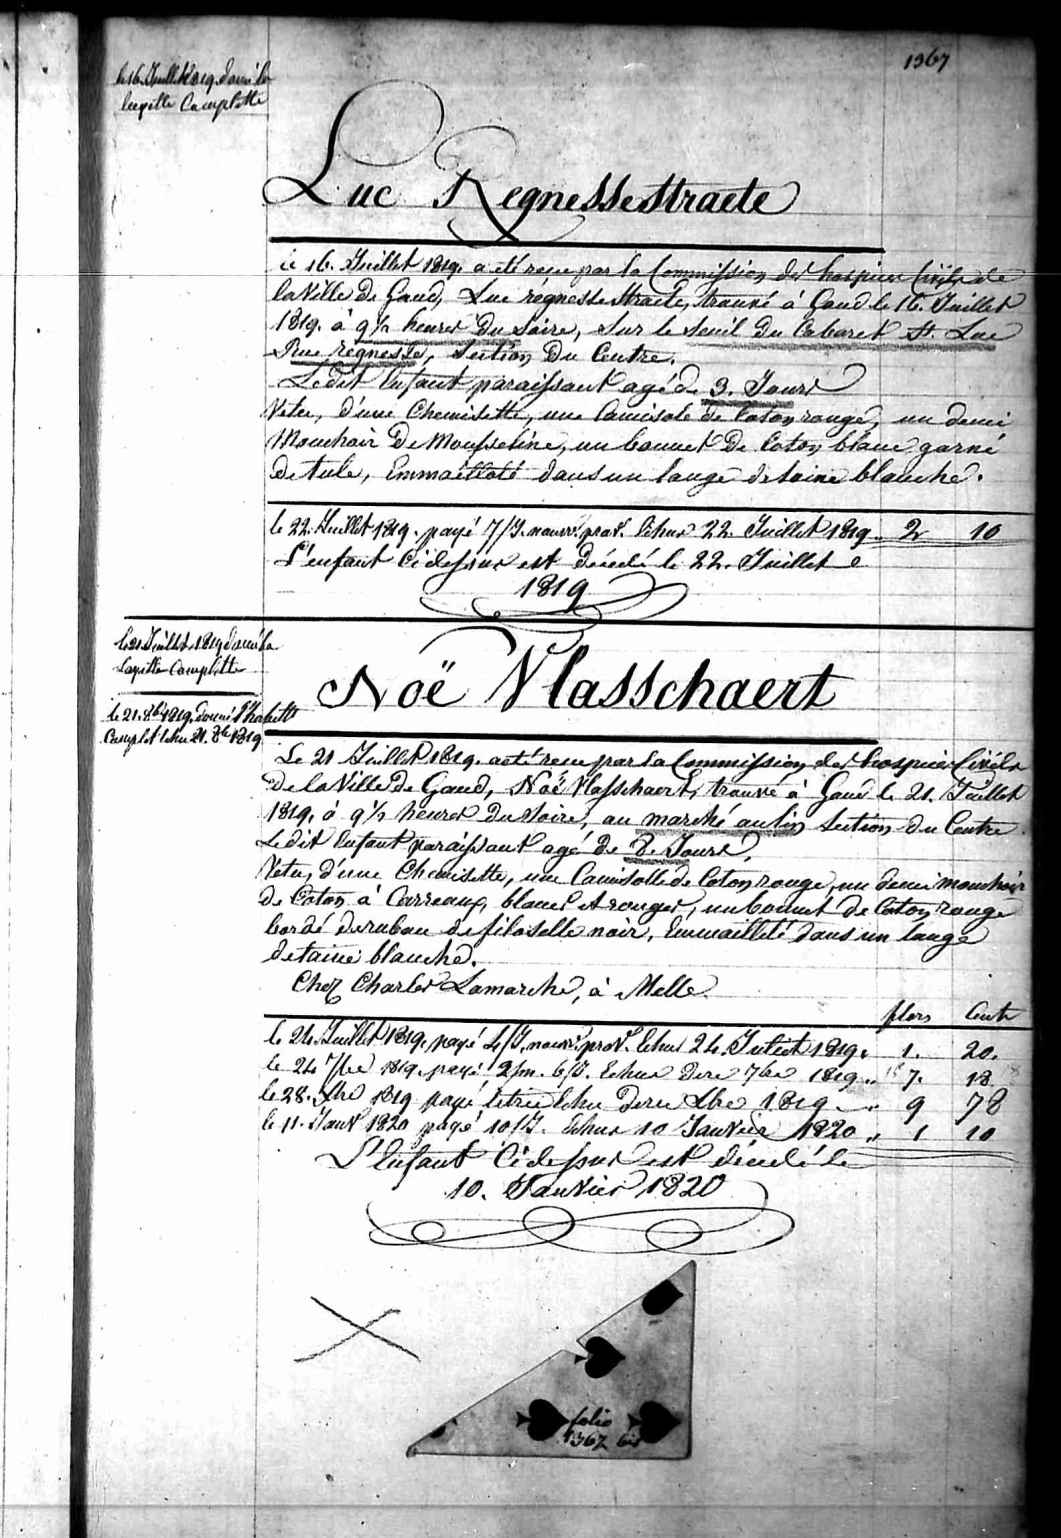 1367
le 16. Juill. 1819. donné la
layette Complette
Luc Regnessestraete
Le 16. Juillet 1819. a été recu par la Commission des hospices Civils de
la Ville de Gand, Luc regnessestraete, trouvé à Gand le 16. Juillet
1819. à 9½ heures du Soire, Sur le Seuil du Cabaret St. Luc
Rue regnesse, Section du Centre.
Ledit Enfant paraissant agé de 3. Jours
Vetu, d'une Chemisette, une Camisole de Coton rouge, un demi
Mouchoir de Mousseline, un bonnet de Coton blanc garni
de tule, Emmailloté dans un lange de laine blanche.
le 22. Juillet 1819. payé 7/J. nourr. prov. Echus 22. Juillet 1819 „ 2 10
L'enfant Cidessus est décédé le 22. Juillet
1819
le 21 Juillet 1819 donné la
Layette Complette
le 21. 8bre 1819. donné l'habill.
Complet Echu 21. 8bre 1819
Noë Vlasschaert
Le 21 Juillet 1819. a eté recu par la Commission des hospices Civils
de la Ville de Gand, Noë Vlasschaert, trouvé à Gand le 21. Juillet
1819. à 9½ heures du Soire, au marché au lin Section du Centre
Ledit Enfant paraissant agé de 8. Jours,
Vetu, d'une Chemisette, une Camisolle de Coton rouge, un demi mouchoir
de Coton à Carreaux, blancs et rouges, un bonnet de Coton rouge
bordé de ruban de filoselle noir, Emmailleté dans un lange
de laine blanche.
Chez Charles Lamarche, à Melle.
flors Cents
le 24. Juillet 1819. payé 4/J. nourr. prov. Echus 24. Juillet 1819. 1. 20.
le 24 7bre 1819. payé 2/m. 6/J. Echus dere 7bre 1819 „ 7. 18
le 28. Xbre 1819 payé letrie Echu dere Xbre 1819 „ 9 78
le 11. Janv 1820 payé 10/J. Echus 10 Janvier 1820 „ 1 10
L'Enfant Cidessus est décédé le
10. Janvier 1820
folio
1367 bis